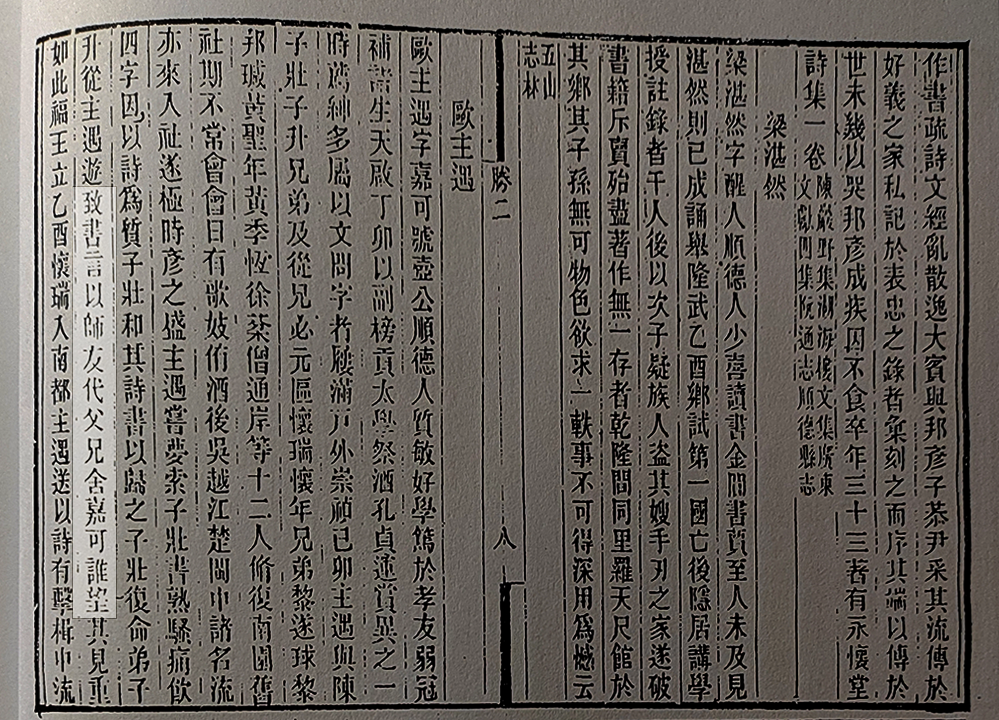 作書疏詩文經亂散逸大賓與邦彥子恭尹采其流傳於
好義之家私記於表忠之錄者彙刻之而序其端以傳於
世未幾以哭邦彥成疾因不食卒年三十三著有永懷堂
詩集一卷陳巖野集湖海樓文集廣東
文獻四集阮通志順德縣志
梁湛然
梁湛然字醒人順德人少喜讀書金閶書賈至人未及見
湛然則已成誦舉隆武乙酉鄉試第一國亡後隱居講學
授註錄者千人後以次子疑族人盜其嫂手刃之家遂破
書籍斥賣殆盡著作無一存者乾隆間同里羅天尺館於
其鄉其子孫無可物色欲求一軼事不可得深用爲憾云
五山
志林
勝二
八
歐主遇
歐主遇字嘉可號壺公順德人質敏好學篤於孝友弱冠
補諸生天啟丁卯以副榜貢太學祭酒孔貞運賞異之一
時薦紳多屬以文問字者屨滿戸外崇禎己卯主遇與陳
子壯子升兄弟及從兄必元區懷瑞懷年兄弟黎遂球黎
邦瑊黃聖年黃季恆徐棻僧通岸等十二人脩復南園舊
社期不常會會日有歌妓侑酒後吳越江楚閩中諸名流
亦來入社遂極時彥之盛主遇嘗夢索子壯書熟騷痛飲
四字因以詩爲質子壯和其詩書以歸之子壯復命弟子
升從主遇遊致書言以師友代父兄舍嘉可誰望其見重
如此福王立乙酉懷瑞入南都主遇送以詩有擊楫中流